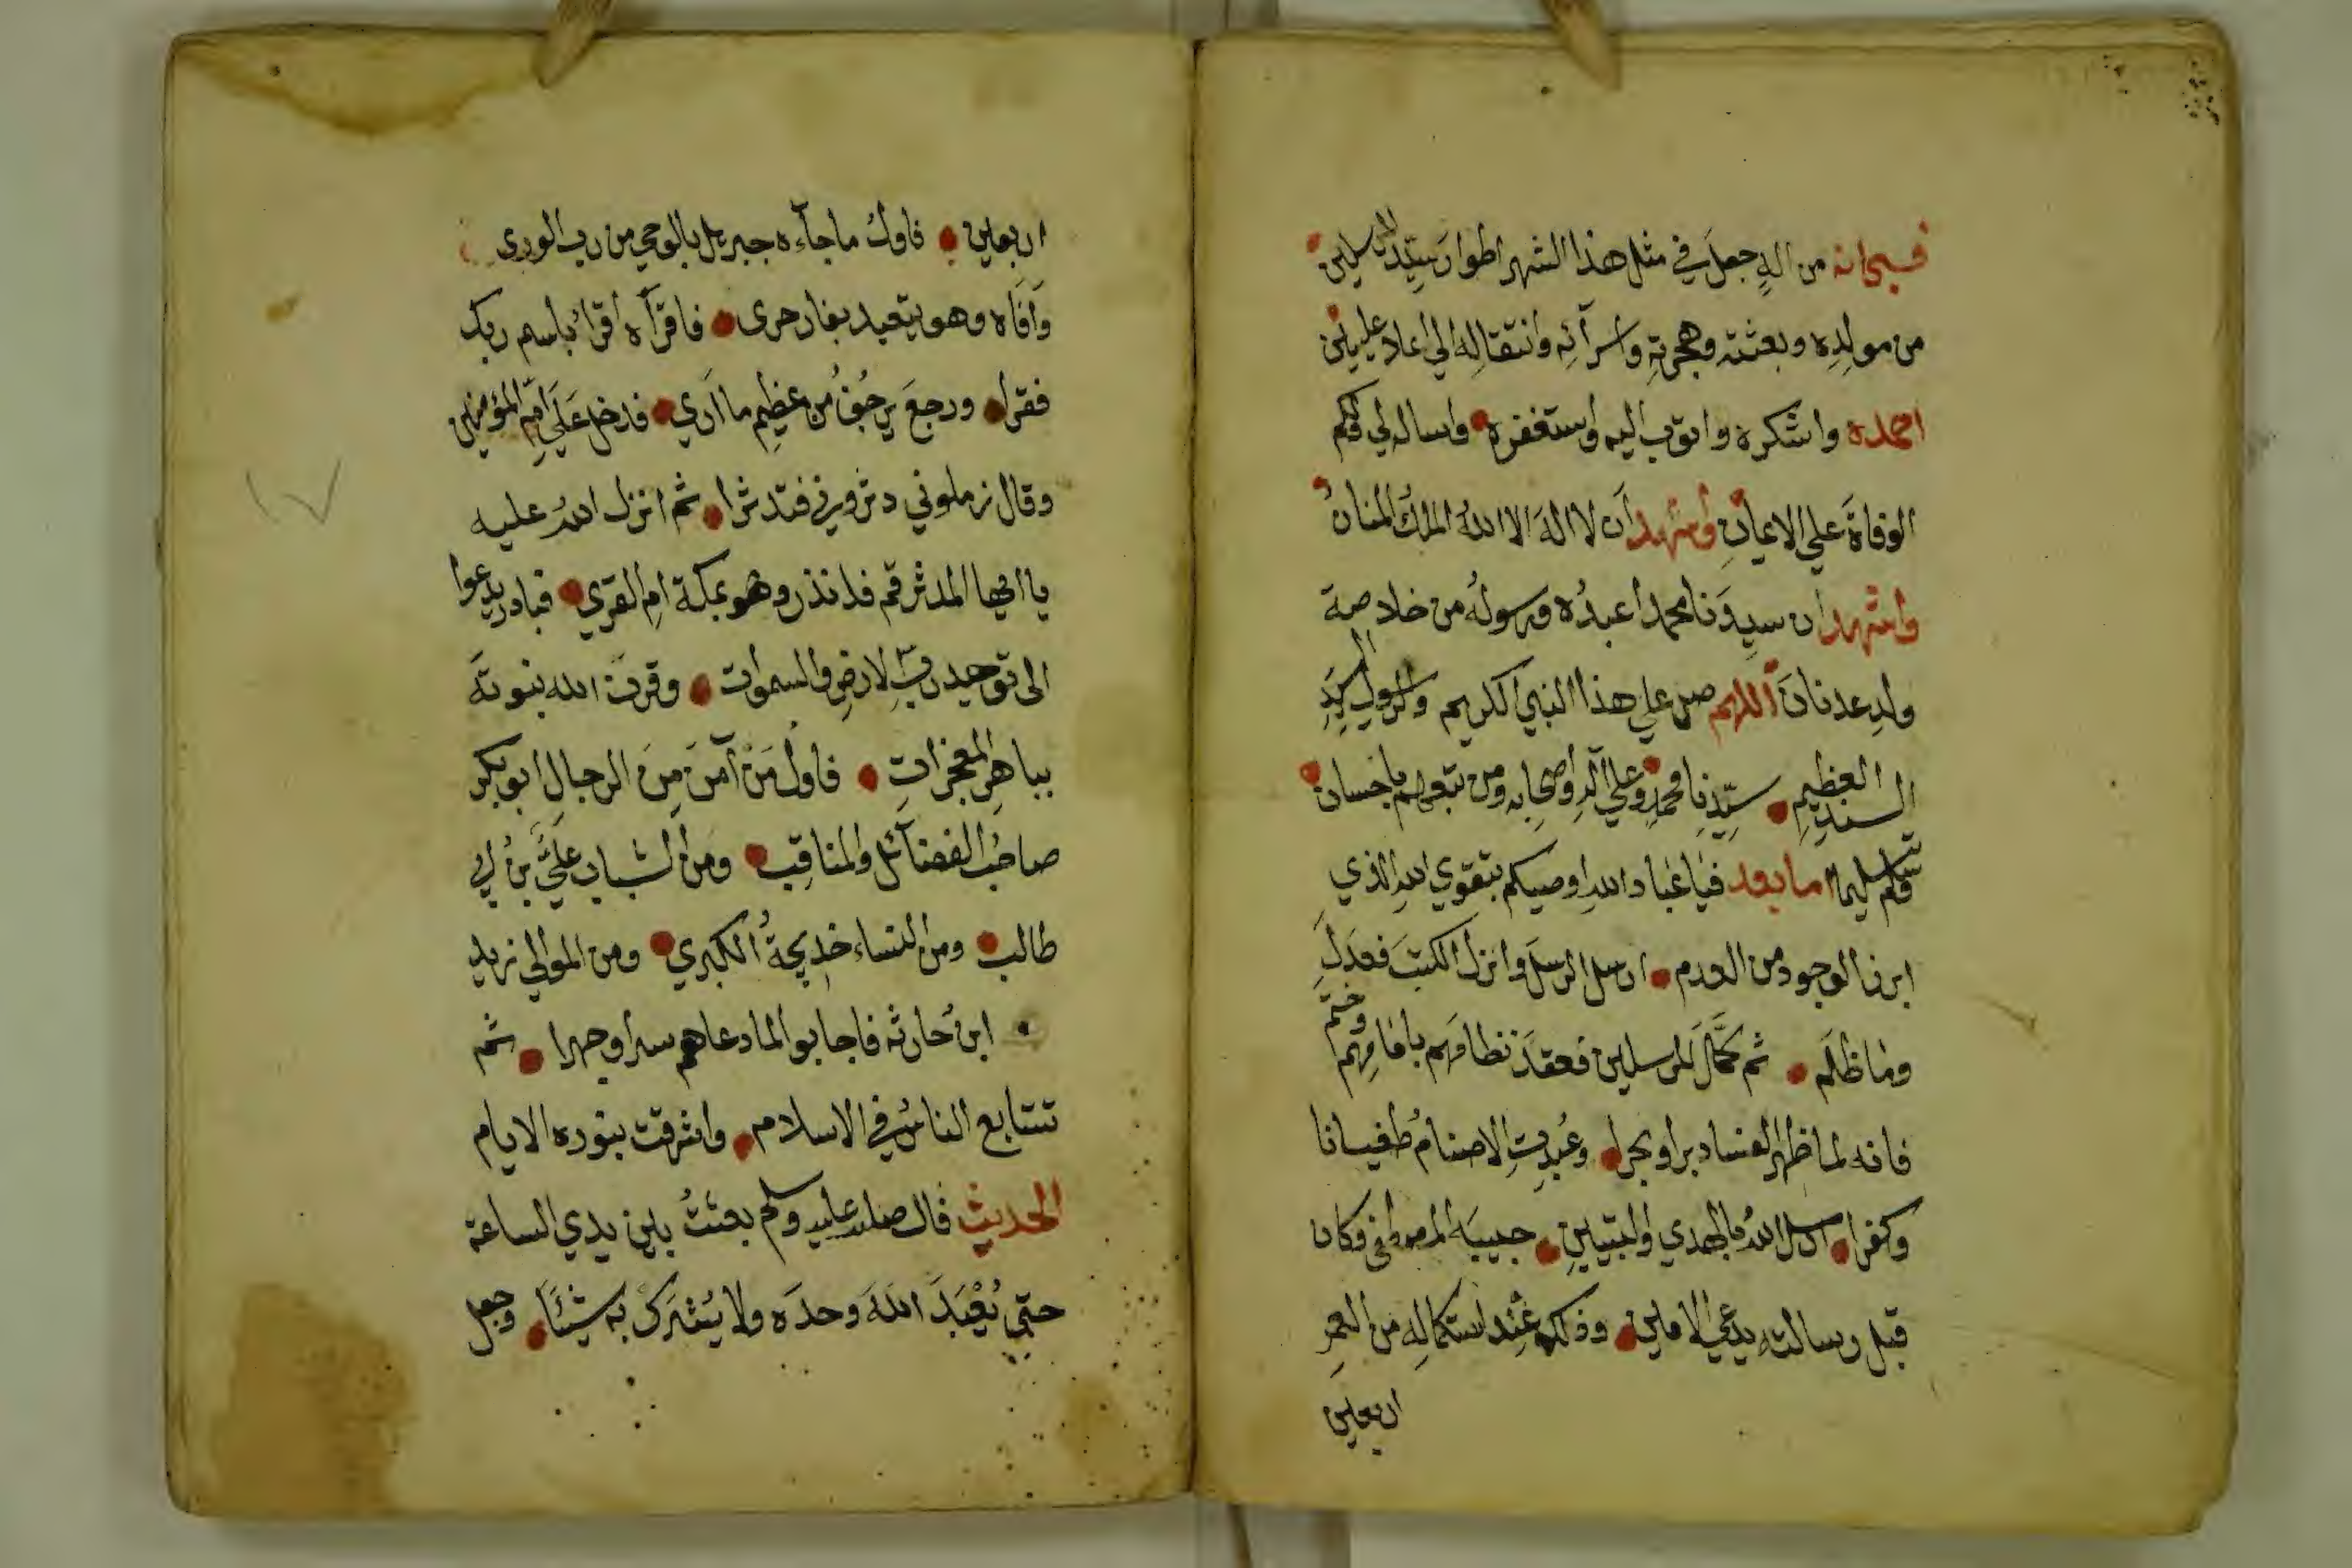 فسبحانه من اله جعل في مثل هذا الشهر اطوار سيد المرسلين
من مولده وبعثته وهجرته واسرآئه وانتقاله الي اعلا عليين
احمده واشكره واتوب اليه واستغفره واساله لي ولكم
الوفاة علي الايمان واشهد ان لا اله الا الله الملك المنان
واشهد ان سيدنا محمدا عبده ورسوله من خلاصة
ولد عدنان اللهم صل علي هذا النبي الكريم والرسول السيد
السند العظيم سيدنا محمد وعلي آله واصحابه ومن تبعهم باحسان
وسلم تسليما اما بعد فيا عباد الله اوصيكم بتقوي الله الذي
ابرز الوجود من العدم ارسل الرسل وانزل الكتب فعدل
وما ظلم ثم كمل المرسلين فعقد نظامهم بامامهم وختم
فانه لما ظهر الفساد برا وبحرا وعبدت الاصنام طغيانا
وكفرا ارسل الله بالهدي والتبيين حبيبه المصطفي فكان
قبل رسالته يدعي الامين وذلك عند استكماله من العمر
اربعين
اربعين فاول ما جآءه جبريل بالوحي من رب الوري
وآفاه وهو يتعبد بغار حرى فاقرآه اقرا باسم ربك
فقرا ورجع يرجف من عظيم ما اري فدخل علي ام المؤمنين
وقال زملوني دثروني فتدثرا ثم انزل الله عليه
يا ايها المدثر قم فانذر وهو بمكة ام القري فبادر يدعوا
الى توحيد رب الارض والسموات وقرن الله بنبوته
بباهر المعجزات فاول من آمن من الرجال ابو بكر
صاحب الفضآئل والمناقب ومن الشباب علي بن ابي
طالب ومن النساء خديجة الكبري ومن الموالي زيد
ابن حارثه فاجابوا لما دعاهم سرا وجهرا ثم
تتتابع الناس في الاسلام واشرقت بنوره الايام
الحديث قال صلى الله عليه وسلم بعثت بين يدي الساعة
حتي يعبد الله وحده ولا يشرك به شيئا وجعل
١٧